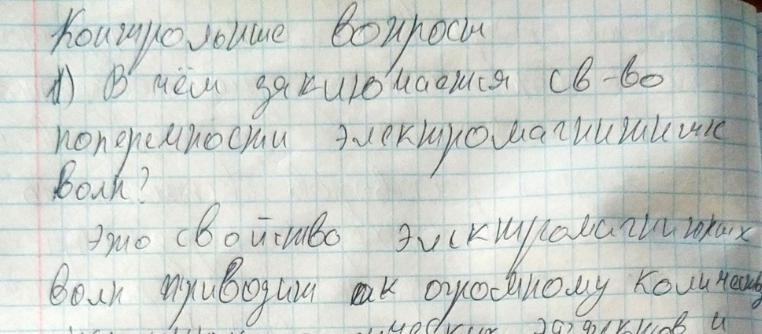 Контрольные вопросы
1) В чём заключается св-во
поперечности электромагнитных
волн?
Это свойство электромагнитных
волн приводит к огромному количеству
и